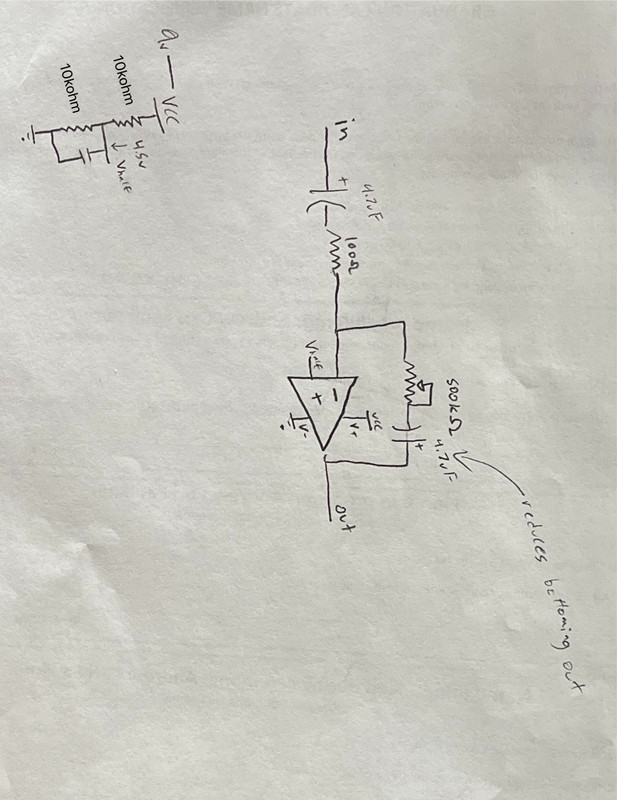 9v
VCC
10kohm
10kohm
4.5v
Vhalf
in
+
4.7uF
100Ω
500kΩ
+
4.7uF
reduces bottoming out
Vhalf
−
+
VCC
V+
V-
out